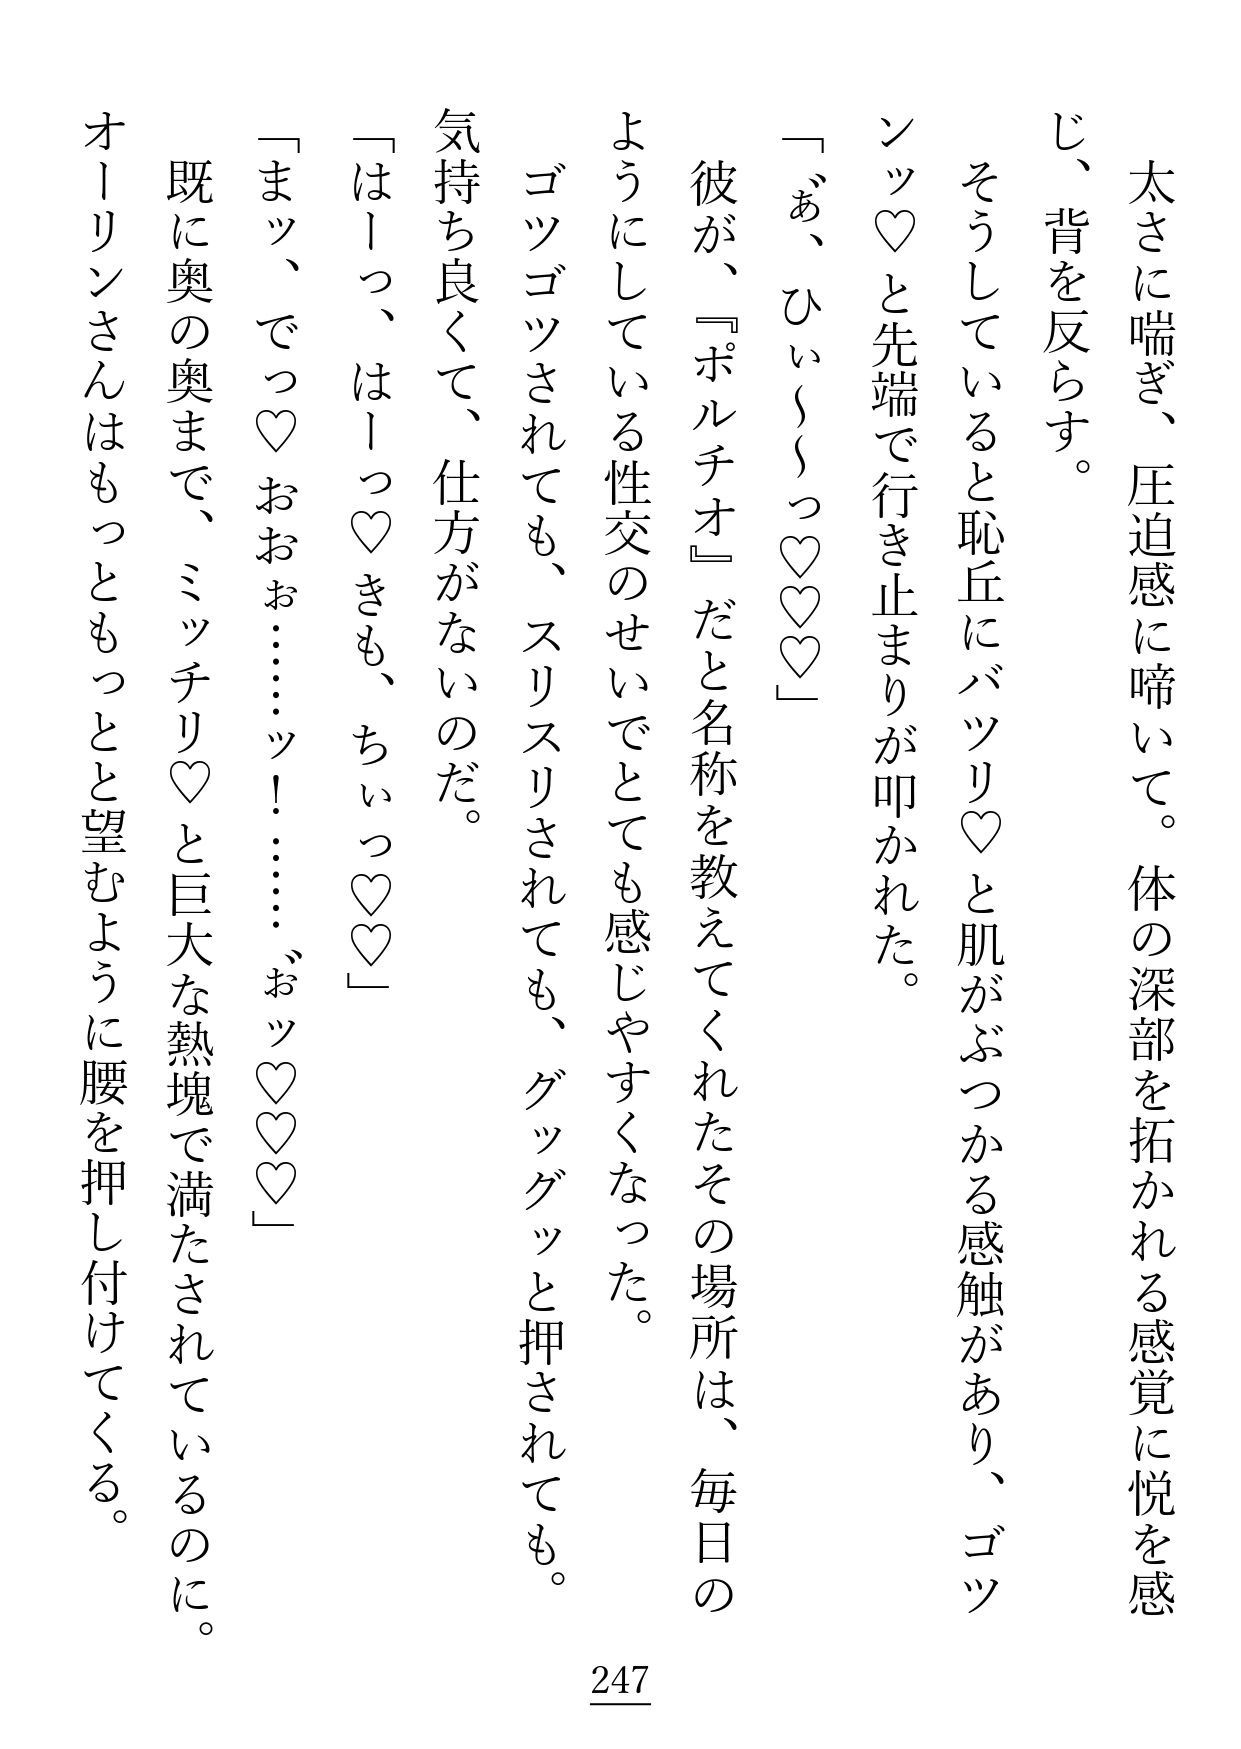 太さに喘ぎ、圧迫感に啼いて。体の深部を拓かれる感覚に悦を感
じ、背を反らす。
そうしていると恥丘にバツリ♡と肌がぶつかる感触があり、ゴツ
ンッ♡と先端で行き止まりが叩かれた。
「ぁ゛、ひぃ～～っ♡♡♡」
彼が、『ポルチオ』だと名称を教えてくれたその場所は、毎日の
ようにしている性交のせいでとても感じやすくなった。
ゴツゴツされても、スリスリされても、グッグッと押されても。
気持ち良くて、仕方がないのだ。
「はーっ、はーっ♡きも、ちぃっ♡♡」
「まッ、でっ♡おおぉ……ッ！……ぉ゛ッ♡♡♡」
既に奥の奥まで、ミッチリ♡と巨大な熱塊で満たされているのに。
オーリンさんはもっともっとと望むように腰を押し付けてくる。
247